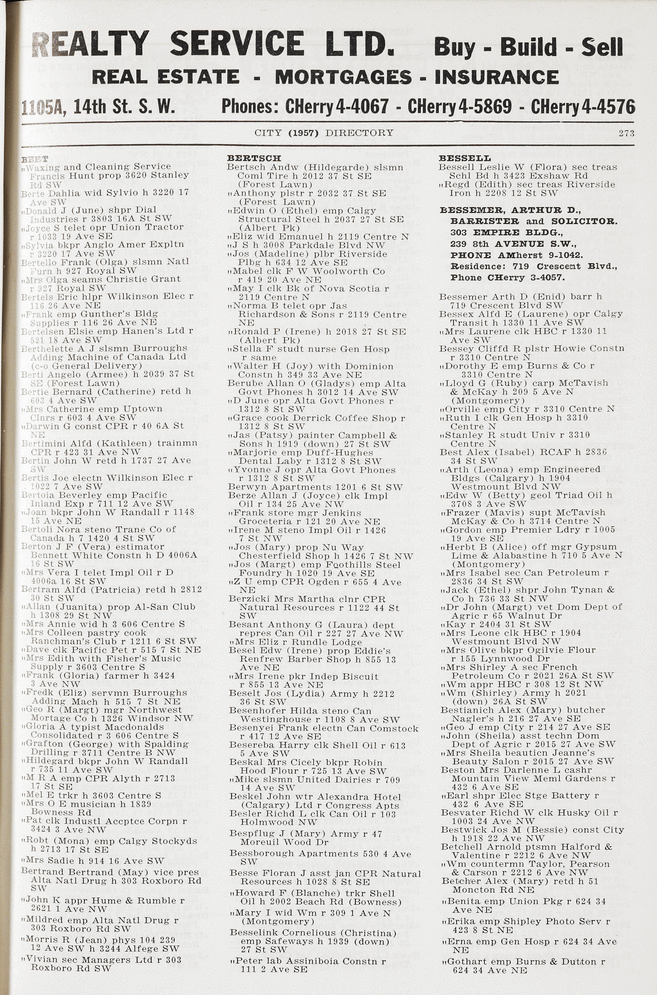 REALTY SERVICE LTD. Buy - Build - Sell
REAL ESTATE - MORTGAGES - INSURANCE
1105A, 14th St. S. W. Phones: CHerry 4-4067 - CHerry 4-5869 - CHerry 4-4576
CITY (1957) DIRECTORY 273
BERT
"Waxing and Cleaning Service
Francis Hunt prop 3620 Stanley
Rd SW
Berte Dahlia wid Sylvio h 3220 17
Ave SW
"Donald J (June) shpr Dial
Industries r 3803 16A St SW
"Joyce S telet opr Union Tractor
r 1033 19 Ave SE
"Sylvia bkpr Anglo Amer Expltn
r 3220 17 Ave SW
Bertello Frank (Olga) slsmn Natl
Furn h 927 Royal SW
"Mrs Olga seams Christie Grant
r 927 Royal SW
Bertels Eric hlpr Wilkinson Elec r
116 26 Ave NE
"Frank emp Gunther's Bldg
Supplies r 116 26 Ave NE
Bertelsen Elsie emp Hanen's Ltd r
521 18 Ave SW
Berthelette A J slsmn Burroughs
Adding Machine of Canada Ltd
(c-o General Delivery)
Berti Angelo (Armee) h 2039 37 St
SE (Forest Lawn)
Bertie Bernard (Catherine) retd h
603 4 Ave SW
"Mrs Catherine emp Uptown
Clnrs r 603 4 Ave SW
"Darwin G const CPR r 40 6A St
NE
Bertimini Alfd (Kathleen) trainmn
CPR r 423 31 Ave NW
Bertin John W retd h 1737 27 Ave
SW
Bertis Joe electn Wilkinson Elec r
1022 7 Ave SW
Bertoia Beverley emp Pacific
Inland Exp r 711 12 Ave SW
"Joan bkpr John W Randall r 1148
15 Ave NE
Bertoli Nora steno Trane Co of
Canada h 7 1420 4 St SW
Berton J F (Vera) estimator
Bennett White Constn h D 4006A
16 St SW
"Mrs Vera I telet Impl Oil r D
4006a 16 St SW
Bertram Alfd (Patricia) retd h 2812
30 St SW
"Allan (Juanita) prop Al-San Club
h 1308 29 St NW
"Mrs Annie wid h 3 606 Centre S
"Mrs Colleen pastry cook
Ranchman's Club r 1211 6 St SW
"Dave clk Pacific Pet r 515 7 St NE
"Mrs Edith with Fisher's Music
Supply r 3603 Centre S
"Frank (Gloria) farmer h 3424
3 Ave NW
"Fredk (Eliz) servmn Burroughs
Adding Mach h 515 7 St NE
"Geo R (Margt) mgr Northwest
Mortage Co h 1326 Windsor NW
"Gloria A typist Macdonalds
Consolidated r 3 606 Centre S
"Grafton (George) with Spalding
Drilling r 3711 Centre B NW
"Hildegard bkpr John W Randall
r 735 11 Ave SW
"M R A emp CPR Alyth r 2713
17 St SE
"Mel E trkr h 3603 Centre S
"Mrs O E musician h 1839
Bowness Rd
"Pat clk Industl Accptce Corpn r
3424 3 Ave NW
"Robt (Mona) emp Calgy Stockyds
h 2713 17 St SE
"Mrs Sadie h 914 16 Ave SW
Bertrand Bertrand (May) vice pres
Alta Natl Drug h 303 Roxboro Rd
SW
"John K appr Hume & Rumble r
2621 1 Ave NW
"Mildred emp Alta Natl Drug r
303 Roxboro Rd SW
"Morris R (Jean) phys 104 239
12 Ave SW h 3244 Alfege SW
"Vivian sec Managers Ltd r 303
Roxboro Rd SW
BERTSCH
Bertsch Andw (Hildegarde) slsmn
Coml Tire h 2012 37 St SE
(Forest Lawn)
"Anthony plstr r 2032 37 St SE
(Forest Lawn)
"Edwin O (Ethel) emp Calgy
Structural Steel h 2037 27 St SE
(Albert Pk)
"Eliz wid Emanuel h 2119 Centre N
"J S h 3008 Parkdale Blvd NW
"Jos (Madeline) plbr Riverside
Plbg h 634 12 Ave SE
"Mabel clk F W Woolworth Co
r 419 20 Ave NE
"May I clk Bk of Nova Scotia r
2119 Centre N
"Norma B telet opr Jas
Richardson & Sons r 2119 Centre
NE
"Ronald P (Irene) h 2018 27 St SE
(Albert Pk)
"Stella F studt nurse Gen Hosp
r same
"Walter H (Joy) with Dominion
Constn h 349 33 Ave NE
Berube Allan O (Gladys) emp Alta
Govt Phones h 3012 14 Ave SW
"D June opr Alta Govt Phones r
1312 8 St SW
"Grace cook Derrick Coffee Shop r
1312 8 St SW
"Jas (Patsy) painter Campbell &
Sons h 1919 (down) 27 St SW
"Marjorie emp Duff-Hughes
Dental Laby r 1312 8 St SW
"Yvonne J opr Alta Govt Phones
r 1312 8 St SW
Berwyn Apartments 1201 6 St SW
Berze Allan J (Joyce) clk Impl
Oil r 134 25 Ave NW
"Frank store mgr Jenkins
Groceteria r 121 20 Ave NE
"Irene M steno Impl Oil r 1426
7 St NW
"Jos (Mary) prop Nu Way
Chesterfield Shop h 1426 7 St NW
"Jos (Margt) emp Foothills Steel
Foundry h 1020 19 Ave SE
"Z U emp CPR Ogden r 655 4 Ave
NE
Berzicki Mrs Martha clnr CPR
Natural Resources r 1122 44 St
SW
Besant Anthony G (Laura) dept
repres Can Oil r 227 27 Ave NW
"Mrs Eliz r Rundle Lodge
Besel Edw (Irene) prop Eddie's
Renfrew Barber Shop h 855 13
Ave NE
"Mrs Irene pkr Indep Biscuit
r 855 13 Ave NE
Beselt Jos (Lydia) Army h 2212
36 St SW
Besenhofer Hilda steno Can
Westinghouse r 1108 8 Ave SW
Besenyei Frank electn Can Comstock
r 417 12 Ave SE
Besereba Harry clk Shell Oil r 613
5 Ave SW
Beskal Mrs Cicely bkpr Robin
Hood Flour r 725 13 Ave SW
"Mike slsmn United Dairies r 709
14 Ave SW
Beskel John wtr Alexandra Hotel
(Calgary) Ltd r Congress Apts
Besler Richd L clk Can Oil r 103
Holmwood NW
Bespflug J (Mary) Army r 47
Moreuil Wood Dr
Bessborough Apartments 530 4 Ave
SW
Besse Floran J asst jan CPR Natural
Resources h 1028 8 St SE
"Howard F (Blanche) trkr Shell
Oil h 2002 Beach Rd (Bowness)
"Mary I wid Wm r 309 1 Ave N
(Montgomery)
Besselink Cornelious (Christina)
emp Safeways h 1939 (down)
27 St SW
"Peter lab Assiniboia Constn r
111 2 Ave SE
BESSELL
Bessell Leslie W (Flora) sec treas
Schl Bd h 3423 Exshaw Rd
"Regd (Edith) sec treas Riverside
Iron h 2208 12 St SW
BESSEMER, ARTHUR D.,
BARRISTER and SOLICITOR.
303 EMPIRE BLDG.,
239 8th AVENUE S.W.,
PHONE AMherst 9-1042.
Residence: 719 Crescent Blvd.,
Phone CHerry 3-4057.
Bessemer Arth D (Enid) barr h
719 Crescent Blvd SW
Bessex Alfd E (Laurene) opr Calgy
Transit h 1330 11 Ave SW
"Mrs Laurene clk HBC r 1330 11
Ave SW
Bessey Cliffd R plstr Howie Constn
r 3310 Centre N
"Dorothy E emp Burns & Co r
3310 Centre N
"Lloyd G (Ruby) carp McTavish
& McKay h 209 5 Ave N
(Montgomery)
"Orville emp City r 3310 Centre N
"Ruth I clk Gen Hosp h 3310
Centre N
"Stanley R studt Univ r 3310
Centre N
Best Alex (Isabel) RCAF h 2836
34 St SW
"Arth (Leona) emp Engineered
Bldgs (Calgary) h 1904
Westmount Blvd NW
"Edw W (Betty) geol Triad Oil h
3708 3 Ave SW
"Frazer (Mavis) supt McTavish
McKay & Co h 3714 Centre N
"Gordon emp Premier Ldry r 1005
19 Ave SE
"Herbt B (Alice) off mgr Gypsum
Lime & Alabastine h 710 5 Ave N
(Montgomery)
"Mrs Isabel sec Can Petroleum r
2836 34 St SW
"Jack (Ethel) shpr John Tynan &
Co h 736 33 St NW
"Dr John (Margt) vet Dom Dept of
Agric r 65 Walnut Dr
"Kay r 2404 31 St SW
"Mrs Leone clk HBC r 1904
Westmount Blvd NW
"Mrs Olive bkpr Ogilvie Flour
r 155 Lynnwood Dr
"Mrs Shirley A sec French
Petroleum Co r 2021 26A St SW
"Wm appr HBC r 308 12 St NW
"Wm (Shirley) Army h 2021
(down) 26A St SW
Bestianich Alex (Mary) butcher
Nagler's h 216 27 Ave SE
"Geo J emp City r 214 27 Ave SE
"John (Sheila) asst techn Dom
Dept of Agric r 2015 27 Ave SW
"Mrs Sheila beauticn Jeanne's
Beauty Salon r 2015 27 Ave SW
Beston Mrs Darlene L cashr
Mountain View Meml Gardens r
432 6 Ave SE
"Earl shpr Elec Stge Battery r
432 6 Ave SE
Besvater Richd W clk Husky Oil r
1003 24 Ave NW
Bestwick Jos M (Bessie) const City
h 1918 22 Ave NW
Betchell Arnold ptsmn Halford &
Valentine r 2212 6 Ave NW
"Wm countermn Taylor, Pearson
& Carson r 2212 6 Ave NW
Betcher Alex (Mary) retd h 51
Moncton Rd NE
"Benita emp Union Pkg r 624 34
Ave NE
"Erika emp Shipley Photo Serv r
423 8 St NE
"Erna emp Gen Hosp r 624 34 Ave
NE
"Gothart emp Burns & Dutton r
624 34 Ave NE